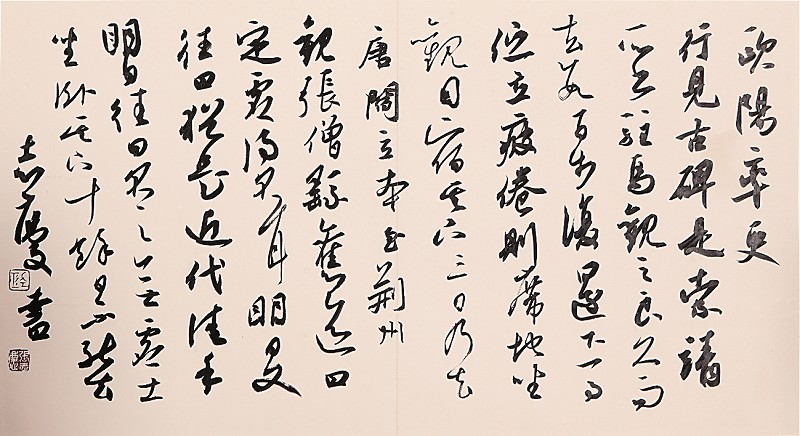 歐陽率更
行見古碑是索靖
所書駐馬觀之良久而
去數百步復還下馬
佇立疲倦則席地坐
觀因宿其下三日乃去
唐閻立本至荊州
觀張僧繇舊迹曰
定虛得名耳明日又
往曰猶是近代佳手
明日往曰名下無虛士
坐臥其下十餘日不能去
書